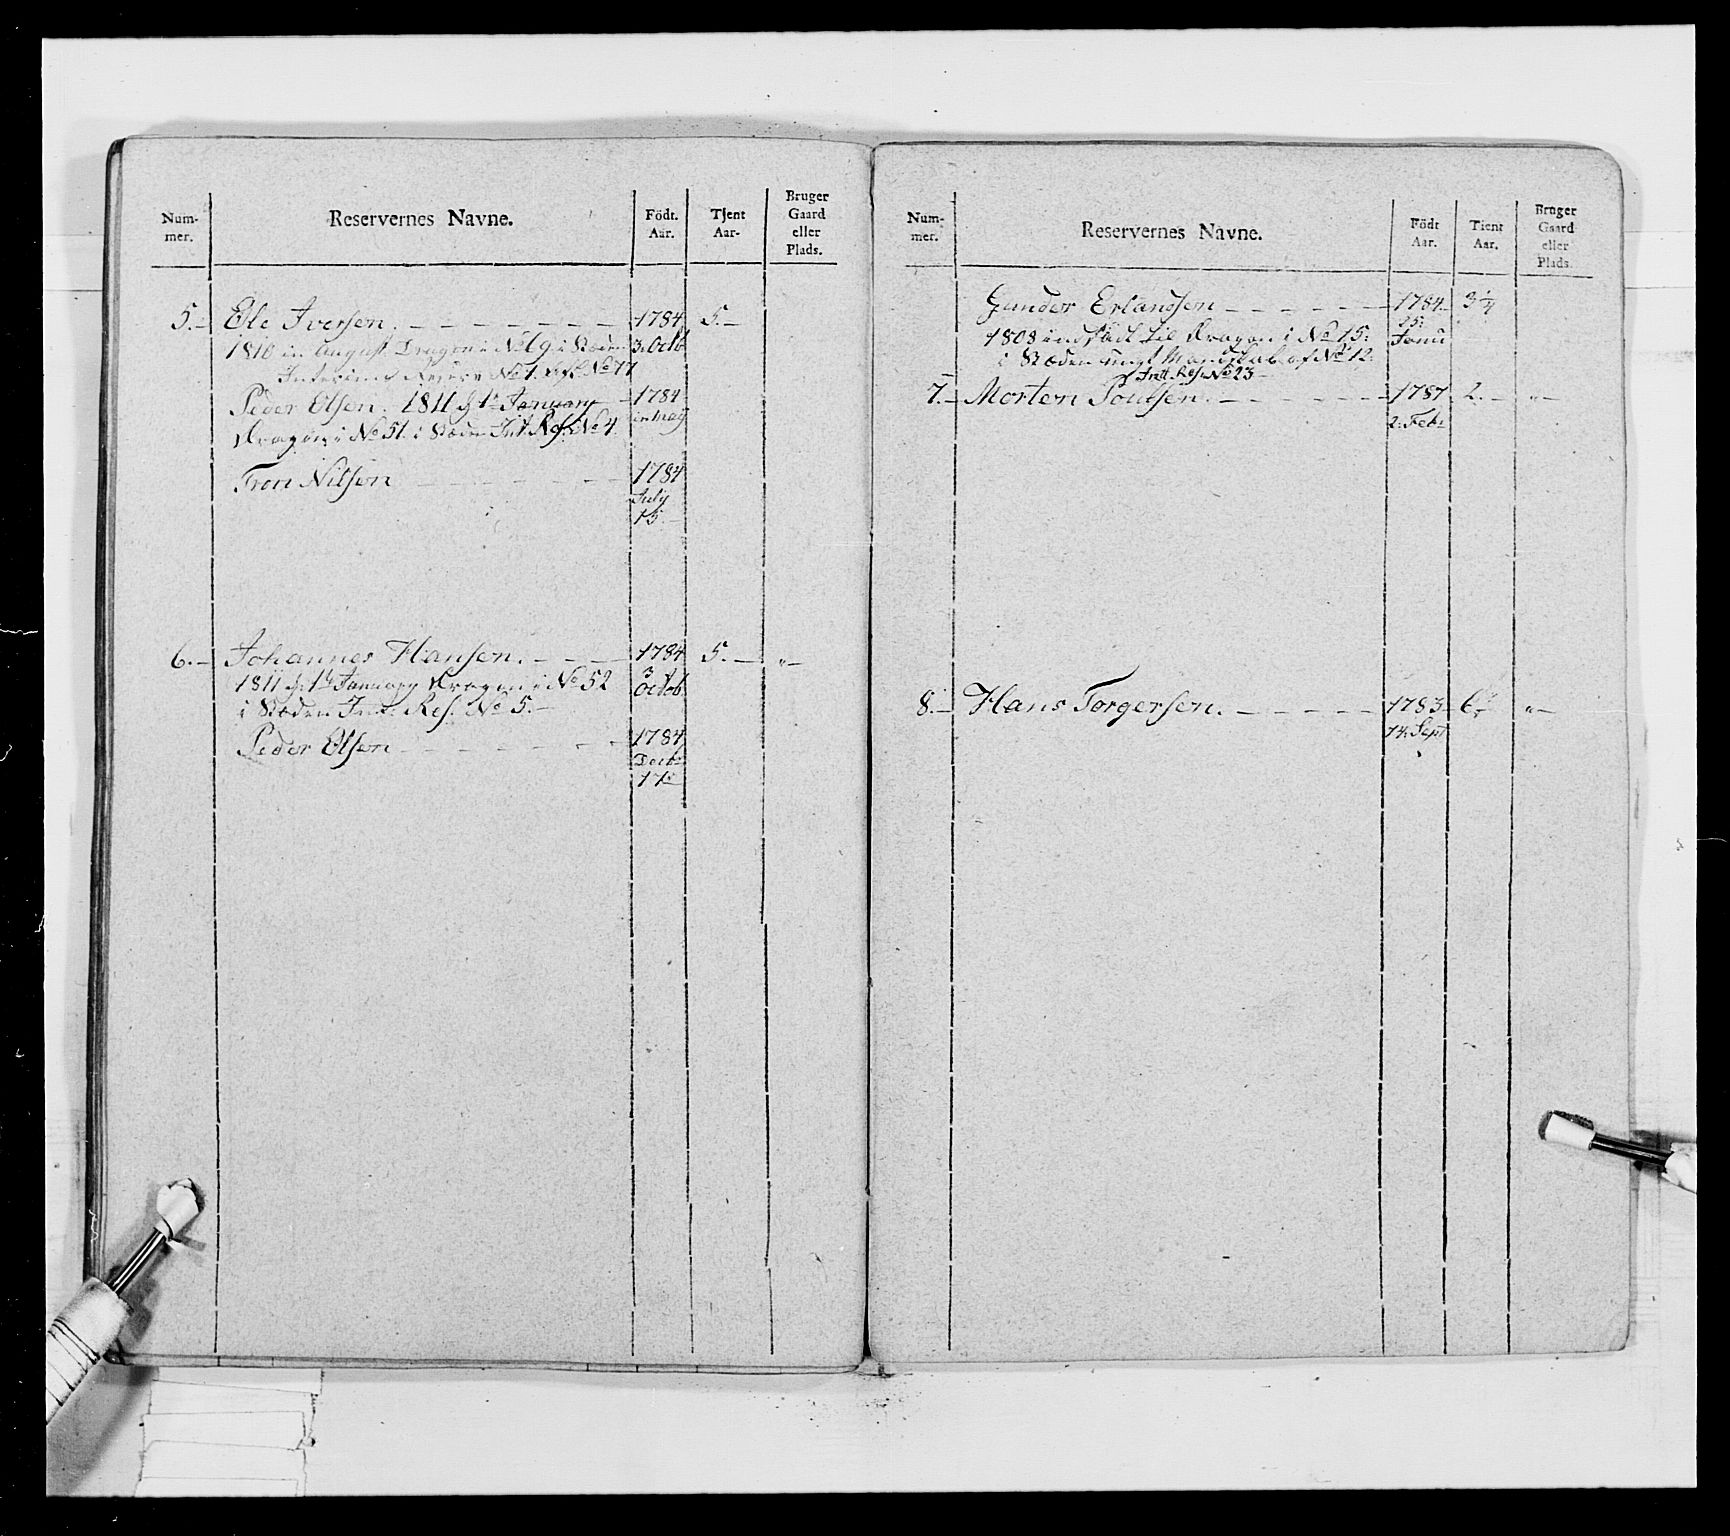 Num-
mer.
Reservernes Navne.
Födt.
Aar.
Tjent
Aar.
Bruger
Gaard
eller
Plads.
5. Ole Iversen. 1784 5.
1810 in August. Dragon i No 69 i Stæden 3. Octb
Interims Reserve No 1.
Peder Olsen. 1811 d. 1te January 1784
Dragon i No 51. i Stæden Int. Res. No 4. in May
Tron Nilsen 1784
July
15.
6. Johannes Hansen. 1784 5. "
1811 d. 1te January Dragon i No 52 3 Octob
i Stæden Int. Res. No 5.
Peder Olsen 1784
Decb
17
Num-
mer.
Reservernes Navne.
Födt
Aar.
Tient
Aar.
Bruger
Gaard
eller
Plads.
Gunder Erlandsen 1784 3 1/4
25.
1808 indsadt til Dragon i No 15. Janu
i Stæden af No 12.
Int. Res. No 23
7. Morten Poulsen. 1787 2. "
2. Feb
8. Hans Torgersen. 1783 6 "
14. Sept